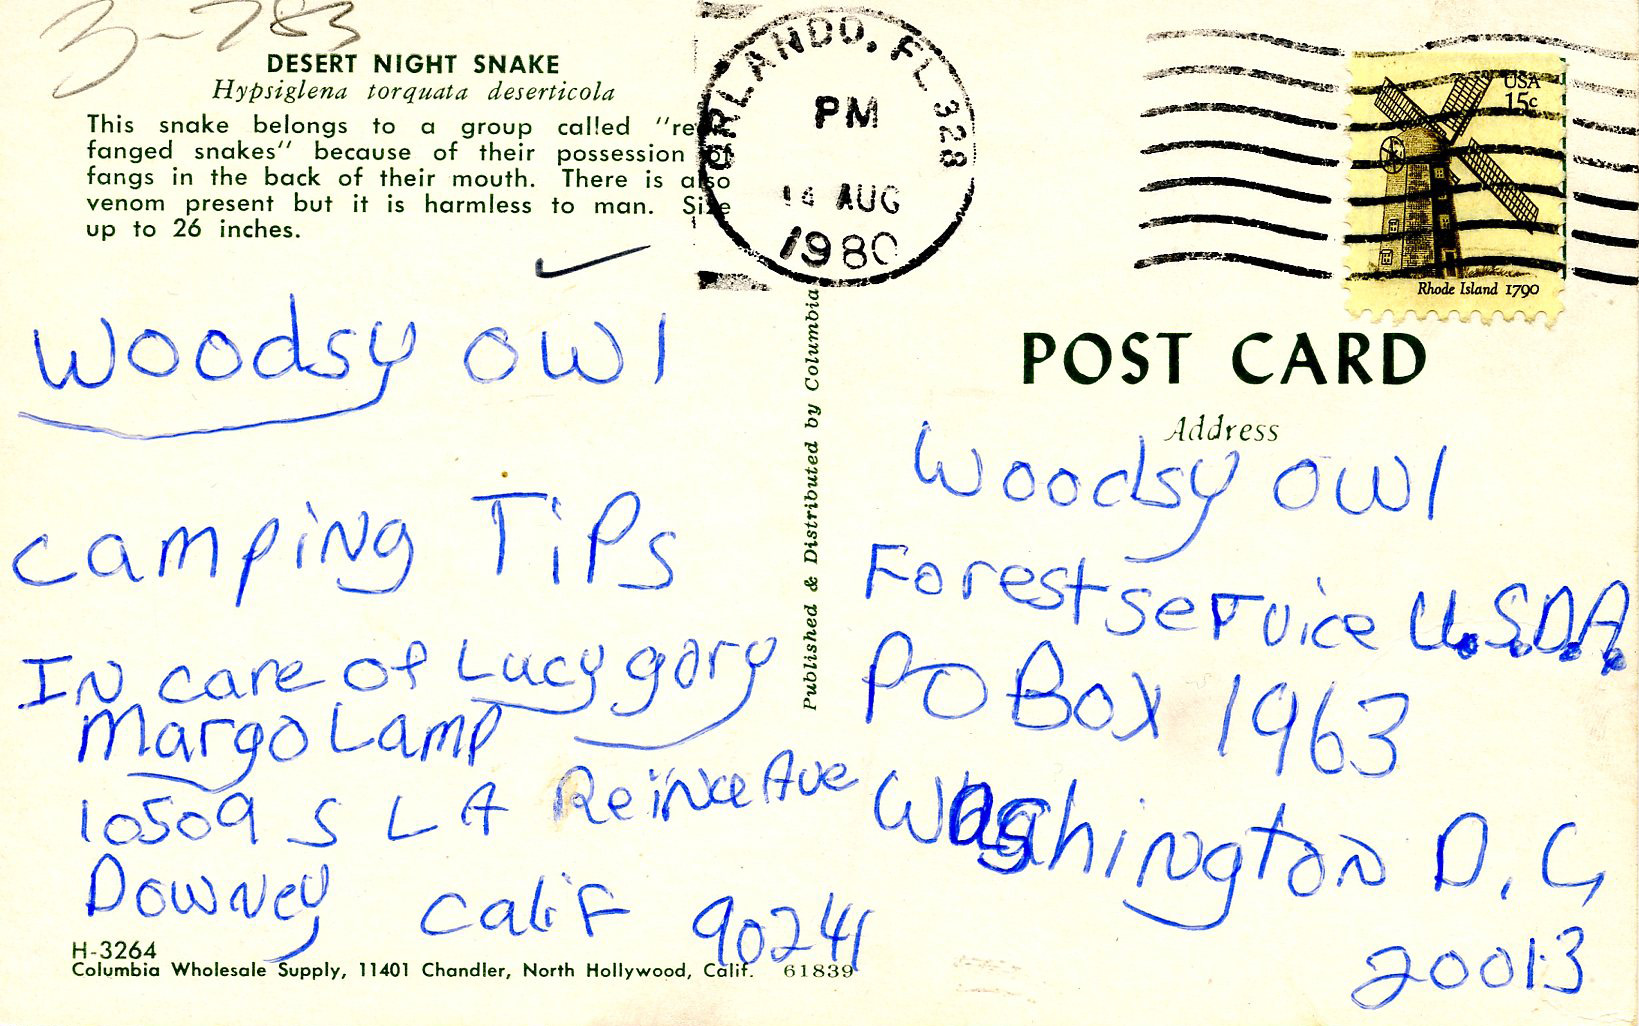 3-783
DESERT NIGHT SNAKE
Hypsiglena torquata deserticola
This snake belongs to a group called "re
fanged snakes" because of their possession of
fangs in the back of their mouth. There is also
venom present but it is harmless to man. Size
up to 26 inches.
Woodsy owl
camping Tips
In care of Lucy gory
Margo Lamp
10509 S LA Reina Ave
Downey Calif 90241
H-3264
Columbia Wholesale Supply, 11401 Chandler, North Hollywood, Calif. 61839
Published & Distributed by Columbia
ORLANDO, FL 328
PM
14 AUG
1980
USA
15c
Rhode Island 1790
POST CARD
Address
Woodsy owl
Forest service U.S.D.A.
PO Box 1963
Washington D.C,
20013